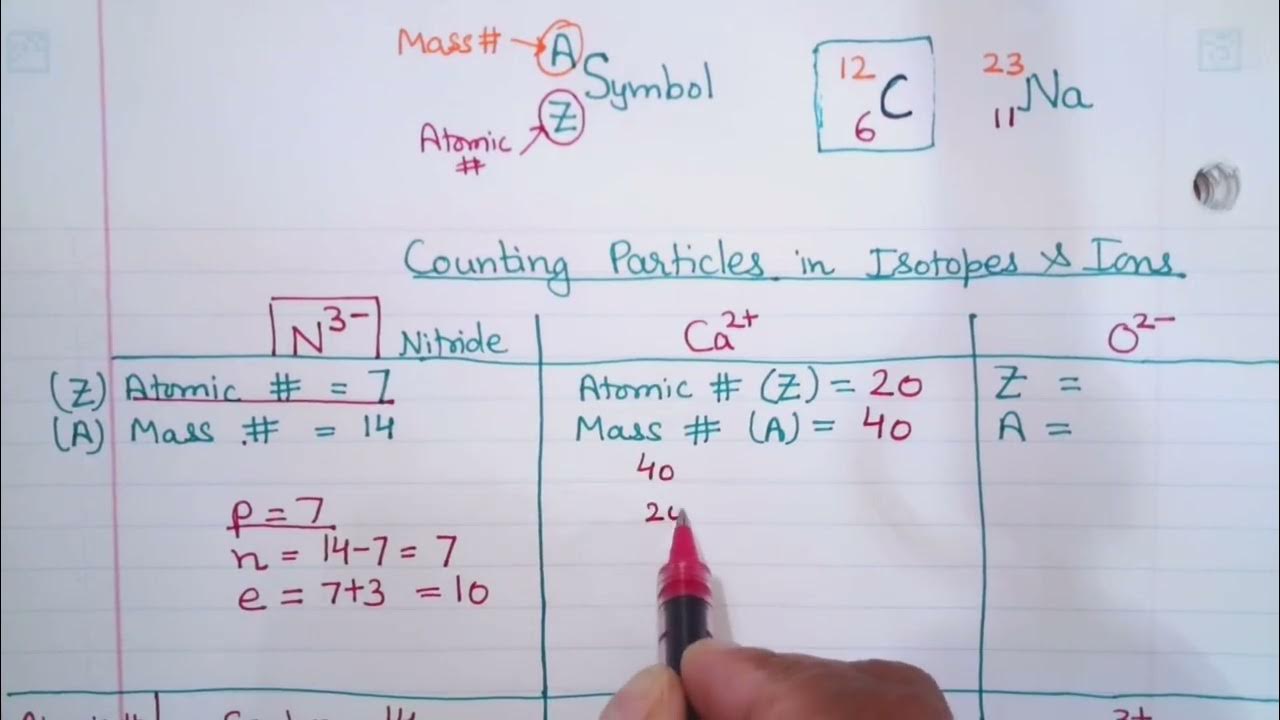 Mass# A Symbol
Atomic # Z
12 6 C
23 11 Na
Counting Particles in Isotopes & Ions
N3- Nitride
Ca2+
O2-
(Z) Atomic # = 7
(A) Mass # = 14
p = 7
n = 14-7 = 7
e = 7+3 = 10
Atomic # (Z) = 20
Mass # (A) = 40
40
Z =
A =
14